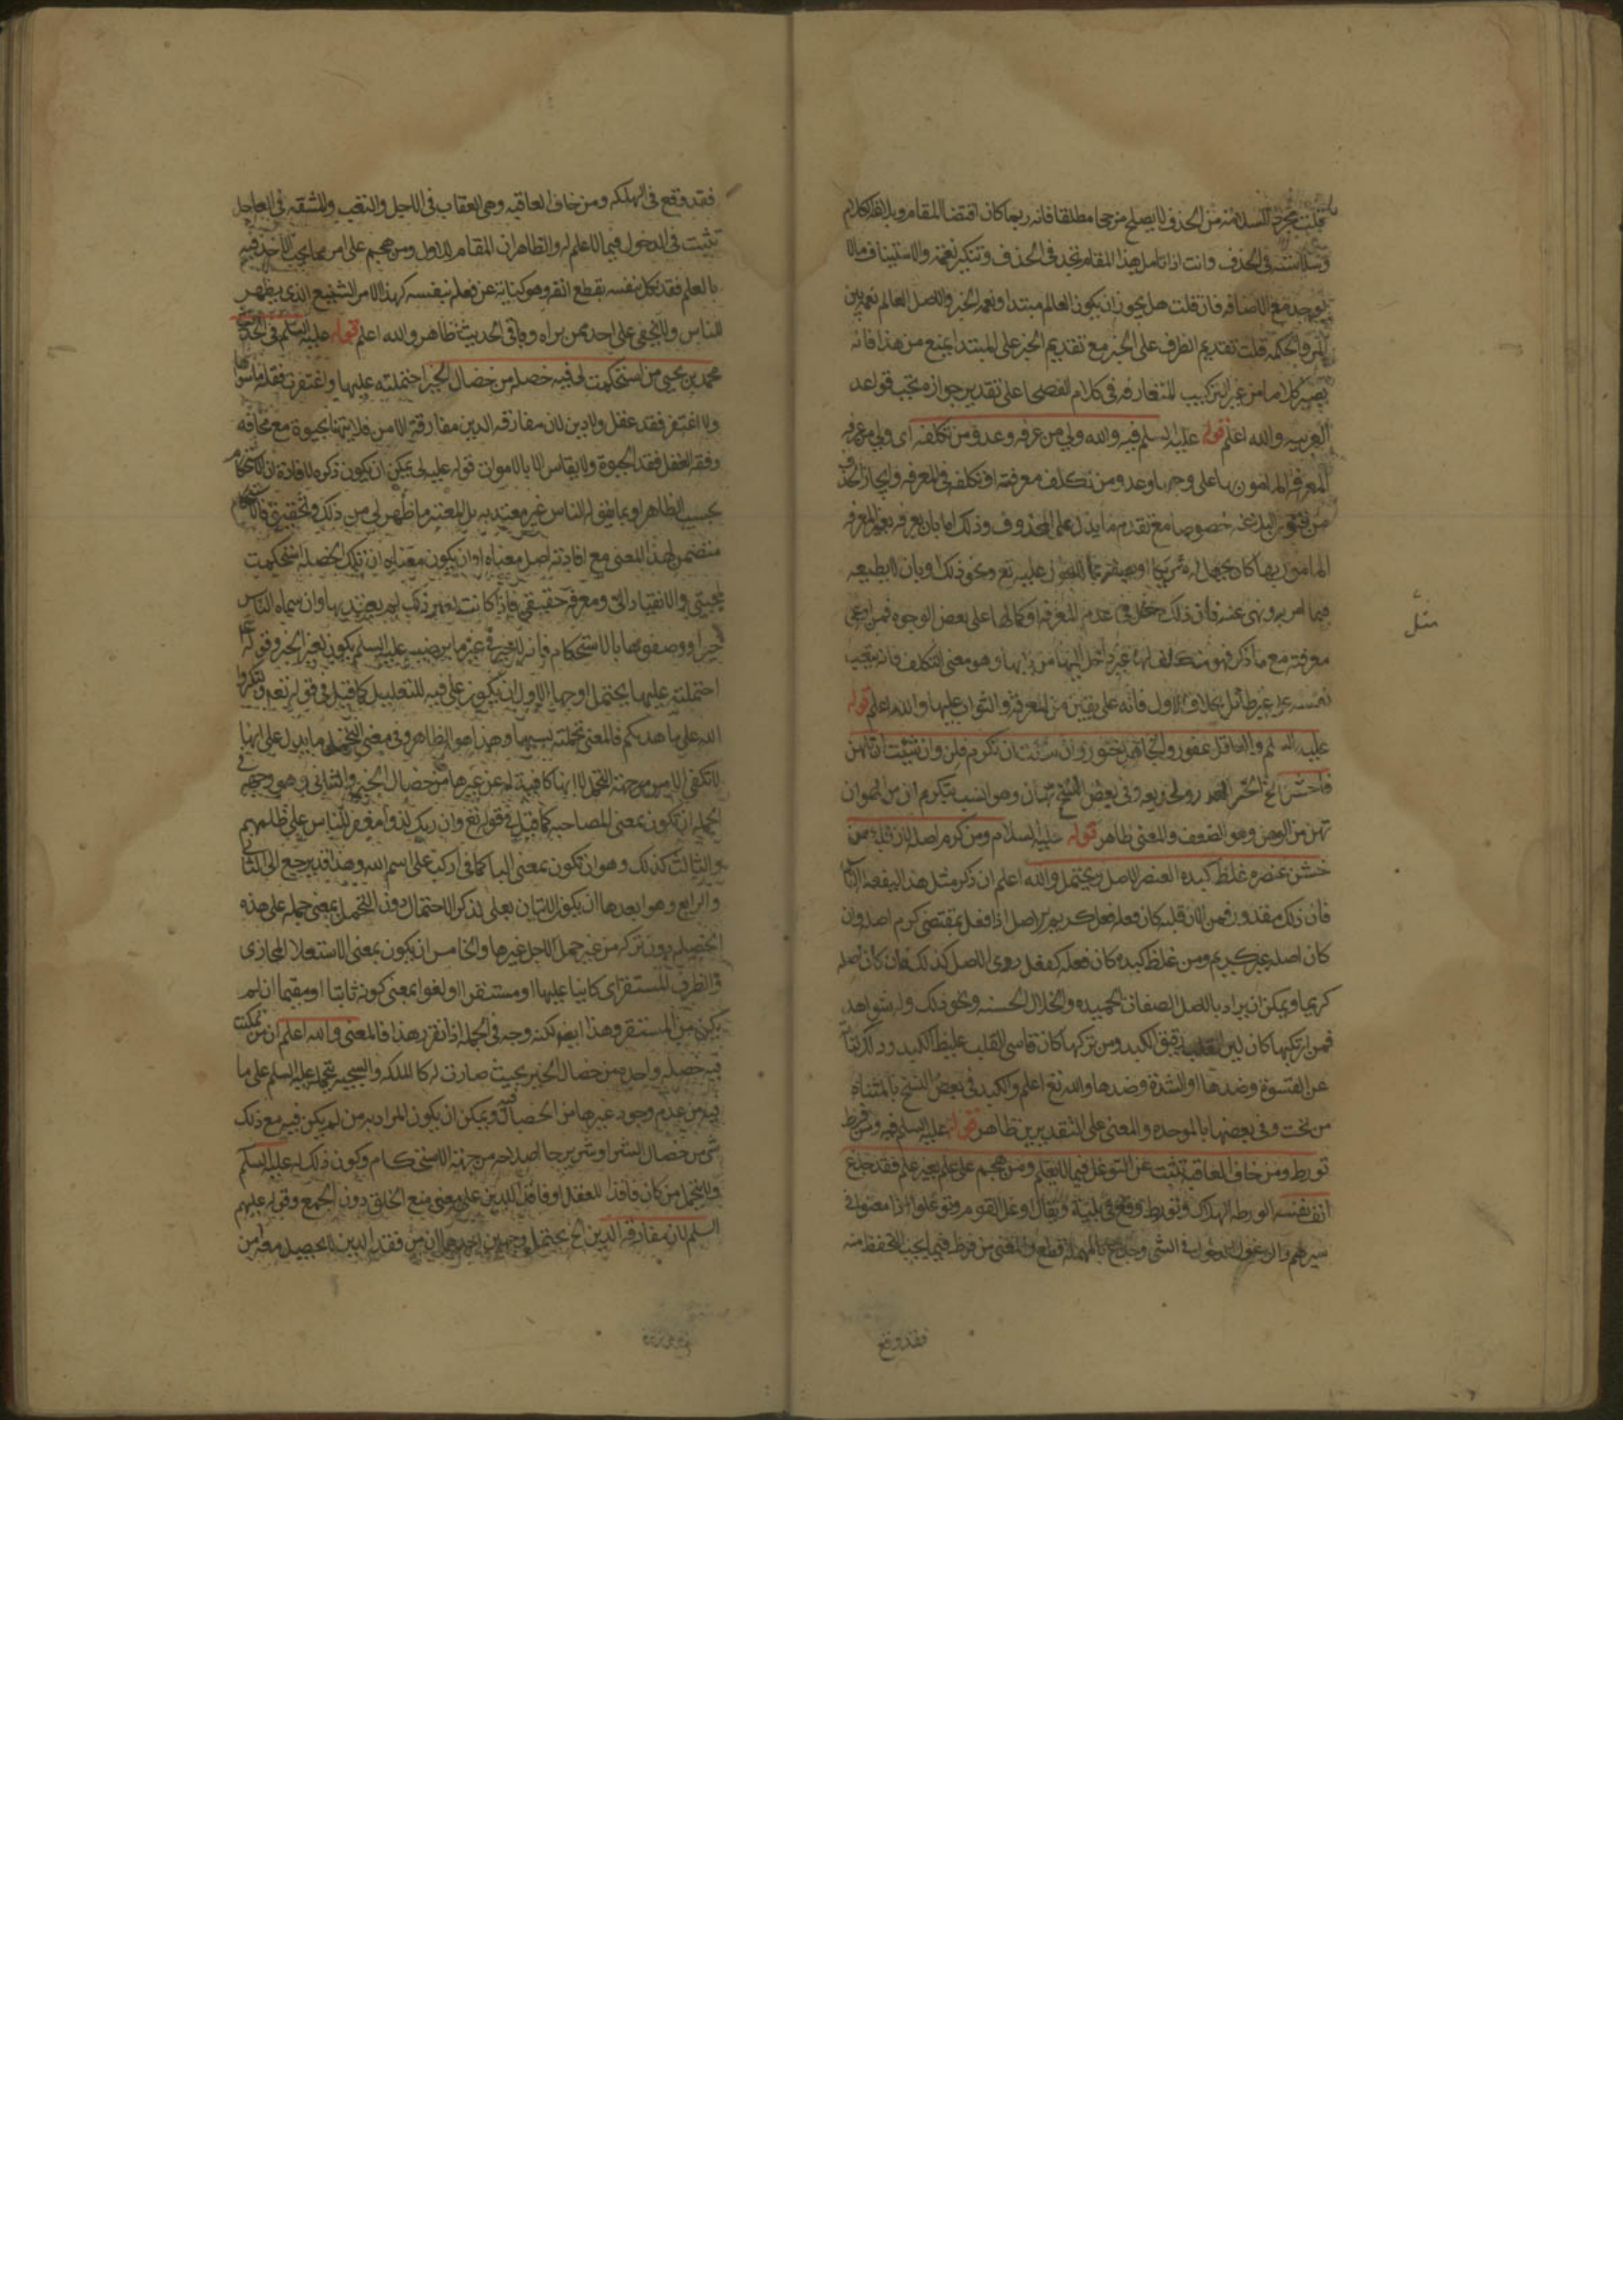 قلت مجرد السلامة من الحذف لا يصلح مرجحا مطلقا فانه ربما كان اقتضا المقام وبلاغة الكلام
وسلاسته في الحذف وانت اذا تامل هذا المقام تجد في الحذف وتنكير نعمة والاستيناف مالا
يوجد مع الاضافه فان قلت هل يجوز ان يكون العالم مبتدا ونعمه الخبر والاصل العالم نعمة بين
المرء والحكمه قلت تقديم الظرف على الخبر مع تقديم الخبر على المبتدا يمنع من هذا فانه
يصير كلاما من غير التركيب المتعارفه في كلام الفصحا على تقدير جوازه بحسب قواعد
العربيه والله اعلم قوله عليه السلم فيه والله ولي من عرفه وعدو من تكلفه اى ولي من عرفه
المعرفه المامون بها على وجهها وعدو من تكلف معرفته او تكلفه في المعرفه وايجاز الحذف
من فنون البلاغه خصوصا مع تقدم ما يدل على المحذوف وذلك اما بان يعرفه بغير المعرفه
المامور بها كان يجعل له شريكا او يصفه بما لا يجوز عليه تع ونحو ذلك او بان لا يطيعه
فيما امر به ونهى عنه فان ذلك دخل في عدم المعرفه او كمالها على بعض الوجوه فمن ادعى
معرفته مع ما ذكر فهو متكلف لها غير داخل اليها من بابها وهو معنى التكلف فانه يتعب
نفسه على غير طائل بخلاف الاول فانه على يقين من المعرفة والثواب عليها والله اعلم قوله
عليه السلم والعاقل غفور والجاهل ختور وان شئت ان تكرم فلن وان شئت ان تهن
فاخشن الخ الختر الغدر والخديعه وفي بعض النسخ تهان وهو انسب بتكرم ان من الهوان
تهن من الوهن وهو الضعف والمعنى ظاهر قوله عليه السلام ومن كرم اصله لان قلبه ومن
خشن عنصره غلظ كبده العنصر الاصل ويحتمل والله اعلم ان ذكر مثل هذا ليفعله
فان ذلك مقدور فمن الان قلبه كان فعله فعل كريم الاصل اذا فعل بمقتضى كرم اصله وان
كان اصله غير كريم ومن غلظ كبده كان فعله كفعل روى الاصل كذلك وان كان اصله
كريما ويمكن ان يراد بالاصل الصفات الحميده والخلال الحسنه ونحو ذلك وله شواهد
فمن ارتكبها كان لين القلب رقيق الكبد ومن تركها كان قاسى القلب غليظ الكبد
عن القسوة وضدها او الشدة وضدها والله تع اعلم والكبد في بعض النسخ بالمثناه
من تحت وفي بعضها بالموحده والمعنى على التقديرين ظاهر قوله عليه السلم فيه ومن فرط
تورط ومن خاف العاقبة تثبت عن التوغل فيما لا يعلم ومن هجم على علم بغير علم فقد جدع
انف نفسه الورطه الهلاك وتورط وقع في بلية ويقال اوغل القوم وتوغلوا اذا امضوا في
سيرهم والوغول الدخول في الشى وجدع بالمهمله قطع والمعنى من فرط فيما يجب التحفظ منه
فقد وقع
مثل
فقد وقع في الهلكه ومن خاف العاقبه وهي العقاب في الاجل والتعب والمشقه في العاجل
تثبت في الدخول فيما لا علم له والظاهر ان المقام للاول ومن هجم على امر مما يجب الاخذ فيه
بالعلم فقد نكل نفسه بقطع انفه وهو كناية عن فعله بنفسه كهذا الامر الشنيع الذى يظهر
للناس ولا يخفى على احد ممن يراه وباقي الحديث ظاهر والله اعلم قوله عليه السلم في الحديث
محمد بن يحيى من استحكمت لى فيه خصلة من خصال الخير احتملته عليها واغتفرت فقد ما سواها
ولا اغتفر فقد عقل ولا دين لان مفارقه الدين مفارقة الامن فلا يتهنا بحيوة مع مخافه
وفقد العقل فقد الحيوة ولا يقاس الا بالاموات قوله عليه لى يمكن ان يكون ذكره لافادة ان الاستحكام
بحسب الظاهر او بما يقوله الناس غير معتد به بل المعتبر ما ظهر لي من ذلك وتحقيقى
متضمن لهذا المعنى مع افادته اصل معناه او ان يكون معناه ان تلك الخصله استحكمت
لمحبتى والانقياد الى ومعرفة حقيقتى فاذا كانت لغير ذلك لم يعتد بها وان سماه الناس
خيرا ووصفوها بالاستحكام فانه لا خير في غير ما يرضيه عليه السلم يكون لغير الخير وقوله
احتملته عليها يحتمل اوجها الاول ان يكون على فيه للتعليل كما قيل في قوله تعه ولتكبروا
الله على ما هديكم فالمعنى تحملته بسببها وهذا هو الظاهر وفي معنى التحمل ما يدل على انها
لا تكفى الامن من جهة التحمل لا انها كافية له عن غيرها من خصال الخير والثانى وهو وجه في
الجمله ان تكون بمعنى المصاحبه كما قيل في قوله تع وان ربك لذو مغفرة للناس على ظلمهم
والثالث كذلك وهو ان تكون بمعنى البا كما في اركب على اسم الله وهذا قد يرجع الى الثانى
والرابع وهو ابعدها ان يكون الاتيان بعلى لذكر الاحتمال دون التحمل بمعنى حمله على هذه
الخصله دون تركه من غير حمل لاجل غيرها والخامس ان يكون بمعنى الاستعلا المجازى
والظرف المستقر اى كاينا عليها او مستقرا او لغوا بمعنى كونه ثابتا او مقيما ان لم
يكن من المستقر وهذا ايضا لكنه وجه في الجمله اذا تقرر هذا فالمعنى والله اعلم ان من تمكنت
فيه خصله واحده من خصال الخير بحيث صارت له كالملكه والسجيه تحمله عليه السلم على ما
فيه من عدم وجود غيرها من الخصال فيه ويمكن ان يكون المراد به من لم يكن فيه مع ذلك
شى من خصال الشر او شر يرجا اصلاحه من جهة الاستحكام وكون ذلك له عليه السلم
ولا يتحمل من كان فاقدا للعقل او فاقد الدين على معنى منع الخلو دون الجمع وقوله عليهم
السلم لان مفارقه الدين الخ يحتمل وجهين احدهما ان من فقد الدين لا يحصل معه امن